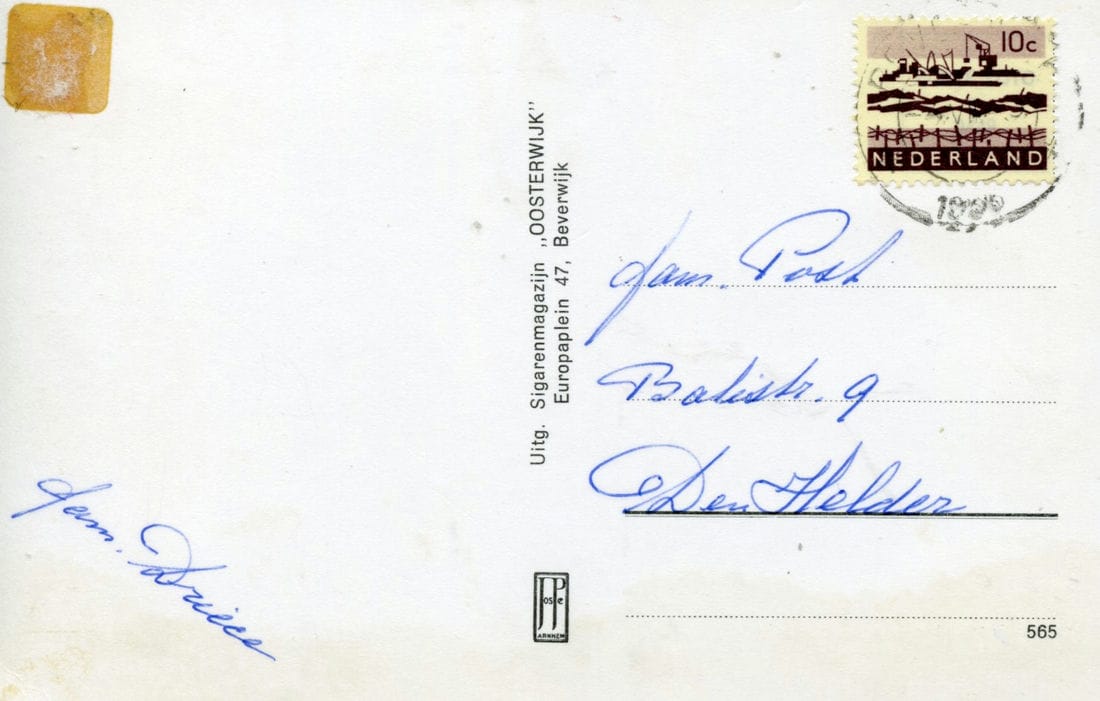 10c
NEDERLAND
Uitg. Sigarenmagazijn „OOSTERWIJK”
Europaplein 47, Beverwijk
fam. Post
Balistr. 9
Den Helder
fam. Driece
JosPe
ARNHEM
565